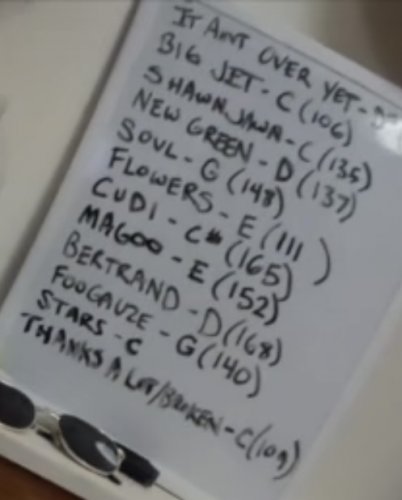 IT ANT OVER YET -
BIG JET - C (106)
SHAWN JAWN - C (135)
NEW GREEN - D (137)
SOUL - G (148)
FLOWERS - E (111)
CUDI - C# (165)
MAGOO - E (152)
BERTRAND - D (168)
FOOGAUZE - G (140)
STARS - C
THANKS A LOT/BROKEN - C (109)